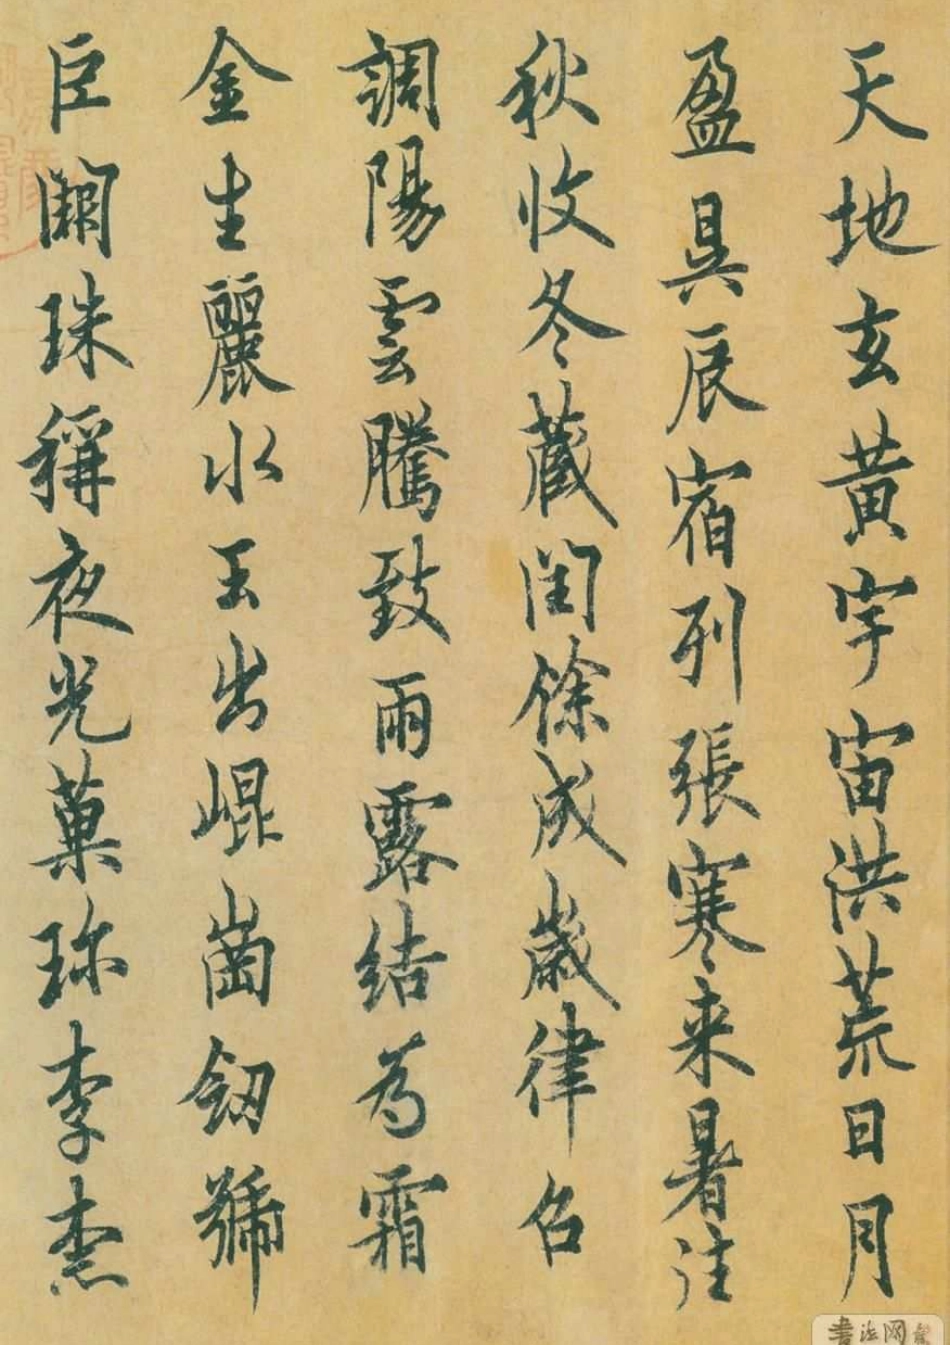 天地玄黃宇宙洪荒日月
盈昃辰宿列張寒来暑往
秋收冬藏閏餘成歲律召
調陽雲騰致雨露結為霜
金生麗水玉出崐崗劒號
巨闕珠稱夜光菓珎李柰
書法网